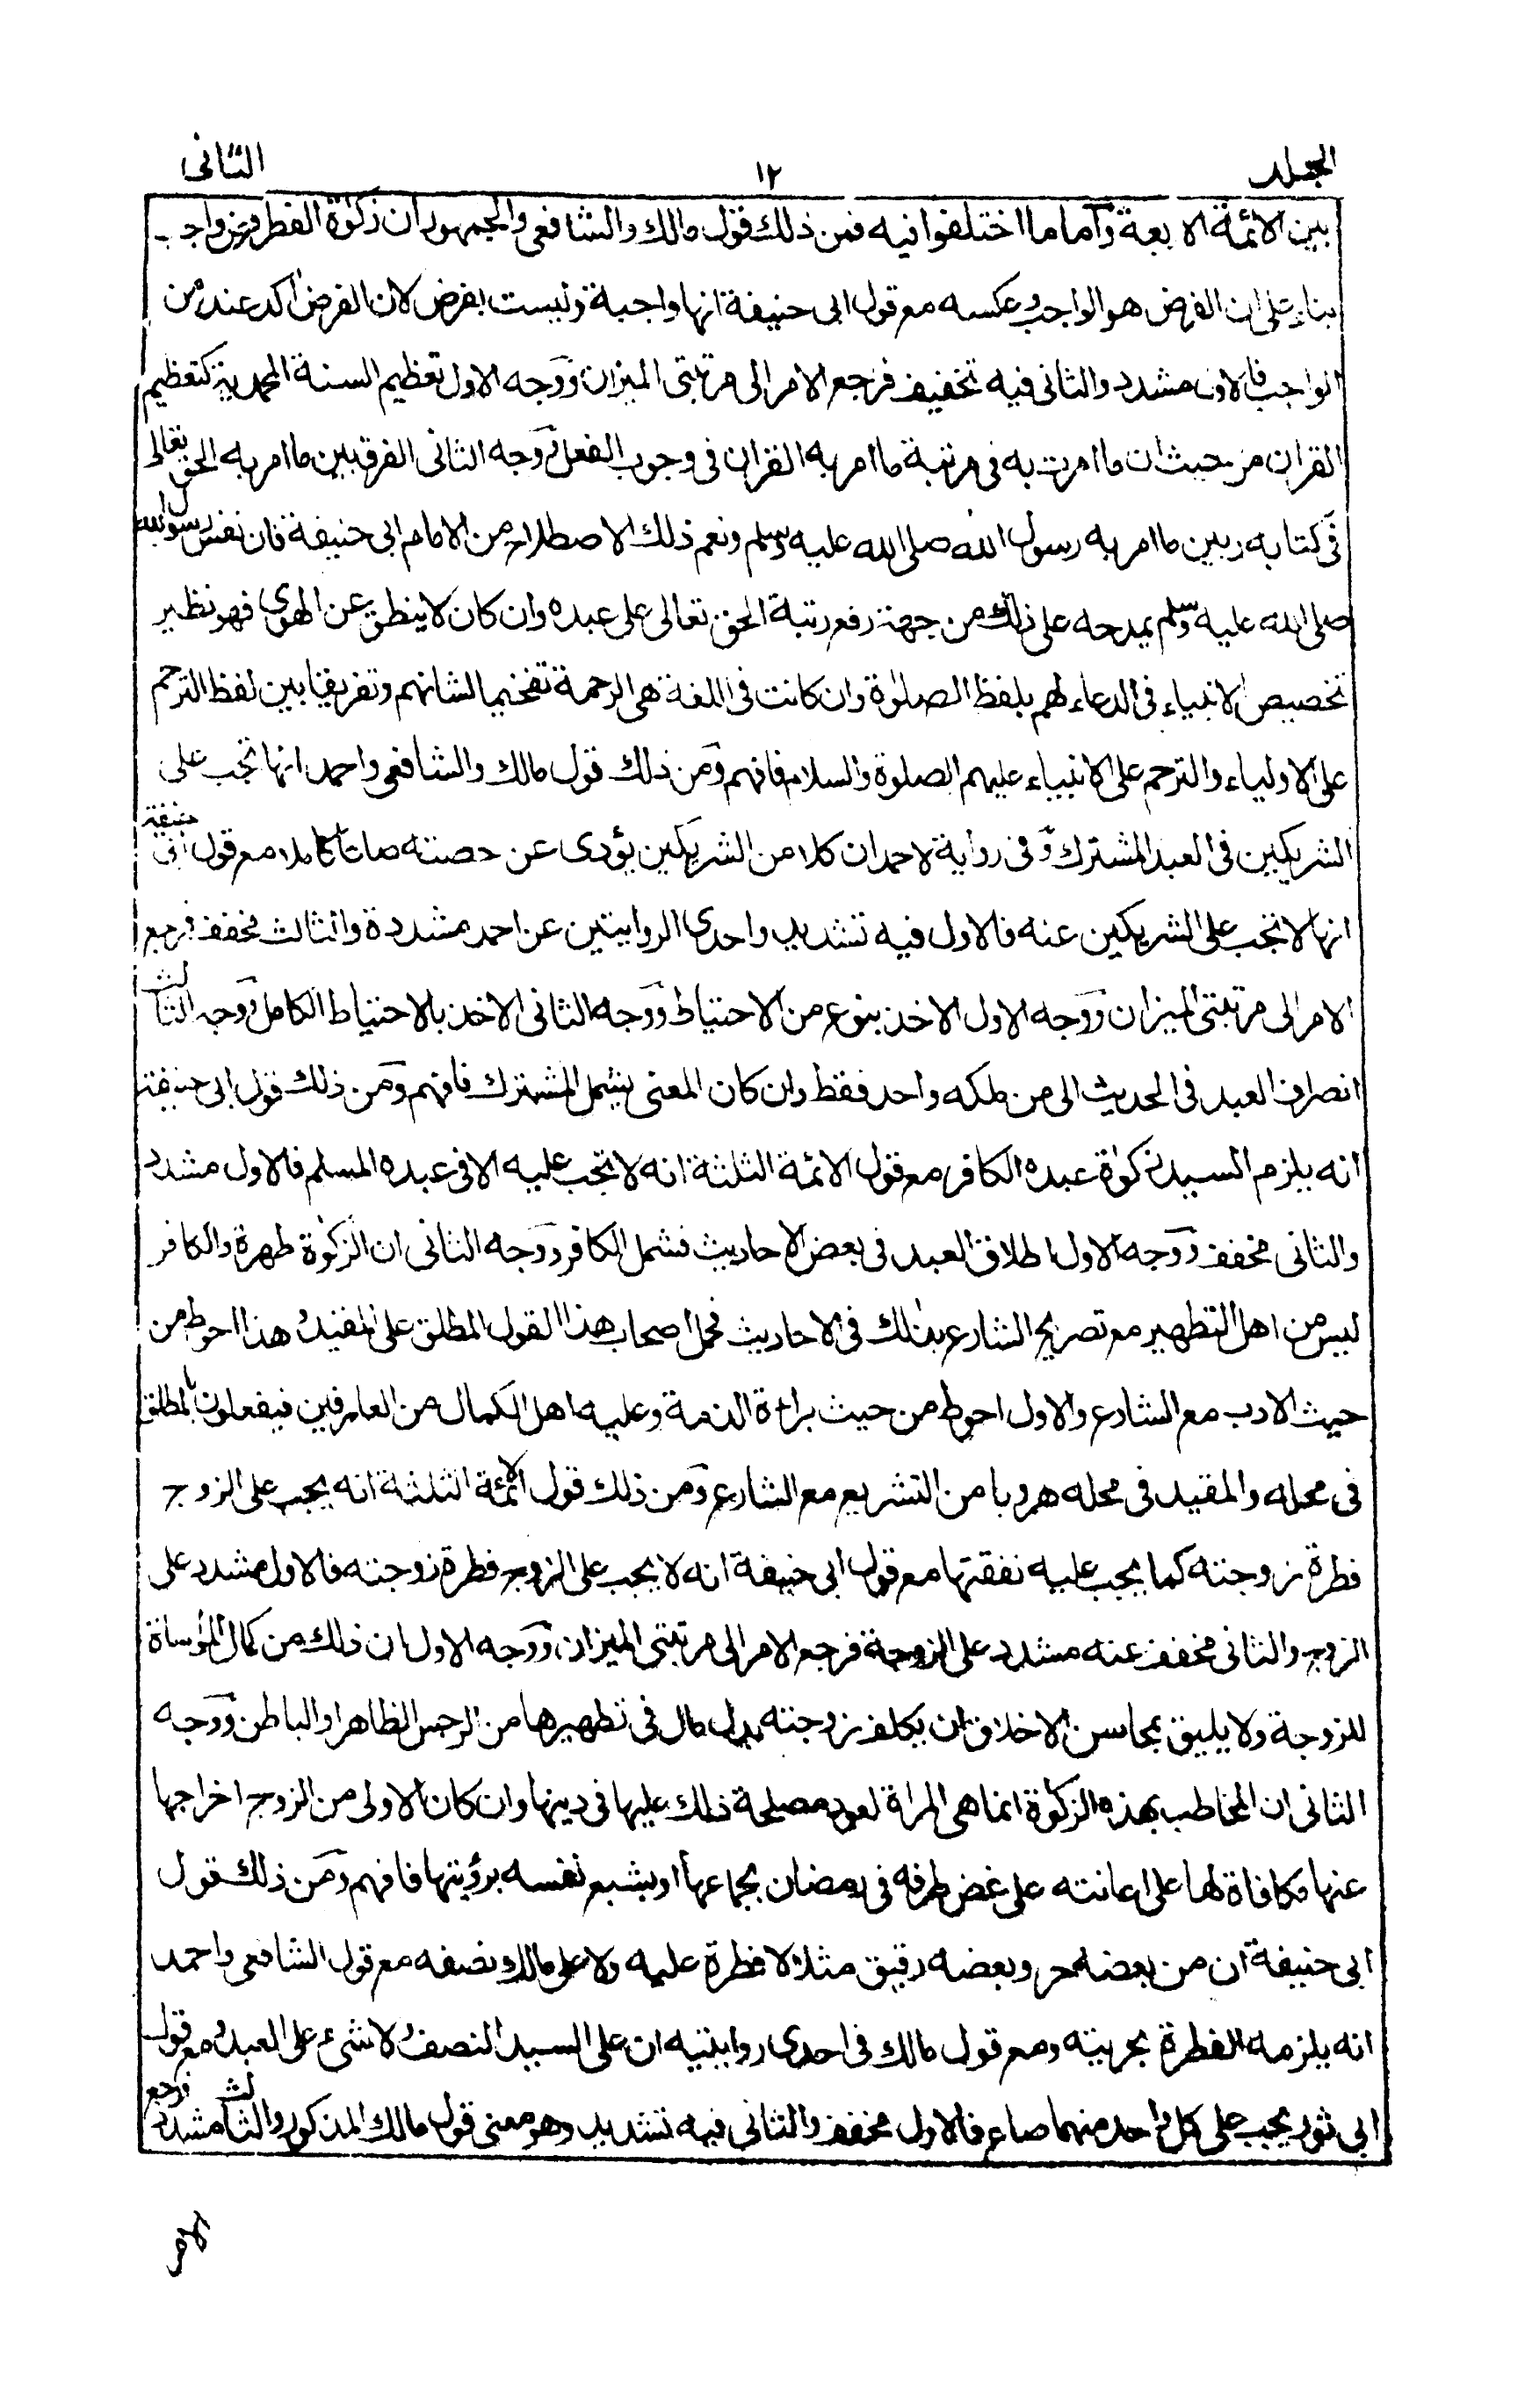 المجلد ١٢ الثانى
بين الائمة الاربعة وآما ما اختلفوا فيه فمن ذلك قول مالك والشافعى والجمهور ان زكوٰة الفطر فرض واجب
بناء على ان الفرض هو الواجب وعكسه مع قول ابى حنيفة انها واجبة وليست بفرض لان الفرض اكد عنده من
الواجب فالاول مشدد والثانى فيه تخفيف فرجع الامر الى مرتبتى الميزان ووجه الاول تعظيم السنة المحمدية كتعظيم
القران من حيث ان ما امرت به فى مرتبة ما امر به القران فى وجوب الفعل ووجه الثانى الفرق بين ما امر به الحق تعالى
فى كتابه وبين ما امر به رسول الله صلى الله عليه وسلم ونعم ذلك الاصطلاح من الامام ابى حنيفة فان نفس رسول الله
صلى الله عليه وسلم يمدحه على ذلك من جهة رفع رتبة الحق تعالى على عبده وان كان لا ينطق عن الهوى فهو نظير
تخصيص الانبياء فى الدعاء لهم بلفظ الصلوٰة وان كانت فى اللغة هى الرحمة تفخيما لشانهم وتفريقا بين لفظ الترحم
على الاولياء والترحم على الانبياء عليهم الصلوة والسلام فافهم ومن ذلك قول مالك والشافعى واحمد انها تجب على
الشريكين فى العبد المشترك وفى رواية لاحمد ان كلا من الشريكين يؤدى عن حصته صاعا كاملا مع قول ابى حنيفة
انها لا تجب على الشريكين عنه فالاول فيه تشديد واحدى الروايتين عن احمد مشددة والثالث مخفف فرجع
الامر الى مرتبتى الميزان ووجه الاول الاخذ بنوع من الاحتياط ووجه الثانى الاخذ بالاحتياط الكامل ووجه الثالث
انصراف العبد فى الحديث الى من ملكه واحد فقط وان كان المعنى يشمل المشترك فافهم ومن ذلك قول ابى حنيفة
انه يلزم السيد زكوٰة عبده الكافر مع قول الائمة الثلثة انه لا تجب عليه الا فى عبده المسلم فالاول مشدد
والثانى مخفف ووجه الاول اطلاق العبد فى بعض الاحاديث فشمل الكافر ووجه الثانى ان الزكوٰة طهرة والكافر
ليس من اهل التطهير مع تصريح الشارع بذلك فى الاحاديث فحمل اصحاب هذا القول المطلق على المقيد وهذا احوط من
حيث الادب مع الشارع والاول احوط من حيث براءة الذمة وعليه اهل الكمال من العارفين فيفعلون بالمطلق
فى محله والمقيد فى محله هروبا من التشريع مع الشارع ومن ذلك قول الائمة الثلثة انه يجب على الزوج
فطرة زوجته كما يجب عليه نفقتها مع قول ابى حنيفة انه لا يجب على الزوج فطرة زوجته فالاول مشدد على
الزوج والثانى مخفف عنه مشدد على الزوجة فرجع الامر الى مرتبتى الميزان ووجه الاول ان ذلك من كمال المؤساة
للزوجة ولا يليق بمحاسن الاخلاق ان يكلف زوجته بذل مال فى تطهيرها من الرجس الظاهر او الباطن ووجه
الثانى ان المخاطب بهذه الزكوٰة انما هى المراة لعود مصلحة ذلك عليها فى دينها وان كان الاولى من الزوج اخراجها
عنها مكافاة لها على اعانته على غض طرفه فى رمضان بجماعها او يشبع نفسه برؤيتها فافهم ومن ذلك قول
ابى حنيفة ان من بعضه حر وبعضه رقيق مثلا لا فطرة عليه ولا على مالك نصفه مع قول الشافعى واحمد
انه يلزمه الفطرة بحريته ومع قول مالك فى احدى روايتيه ان على السيد النصف ولا شئ على العبد ومع قول
ابى ثور يجب على كل واحد منهما صاع فالاول مخفف والثانى فيه تشديد وهو معنى قول مالك المذكور والثالث مشدد فرجع
الامر